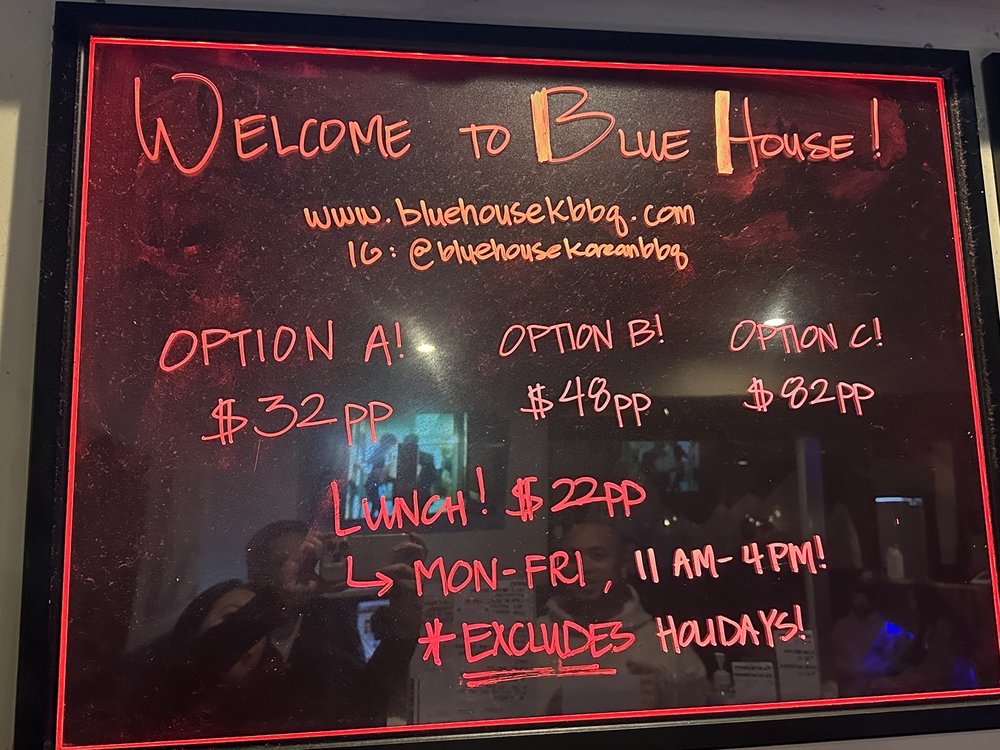 WELCOME TO BLUE HOUSE!
www.bluehousekbbq.com
IG: @bluehousekoreanbbq
OPTION A! OPTION B! OPTION C!
$32pp $48pp $82pp
LUNCH! $22pp
↳ MON-FRI, 11 AM-4PM!
*EXCLUDES HOLIDAYS!